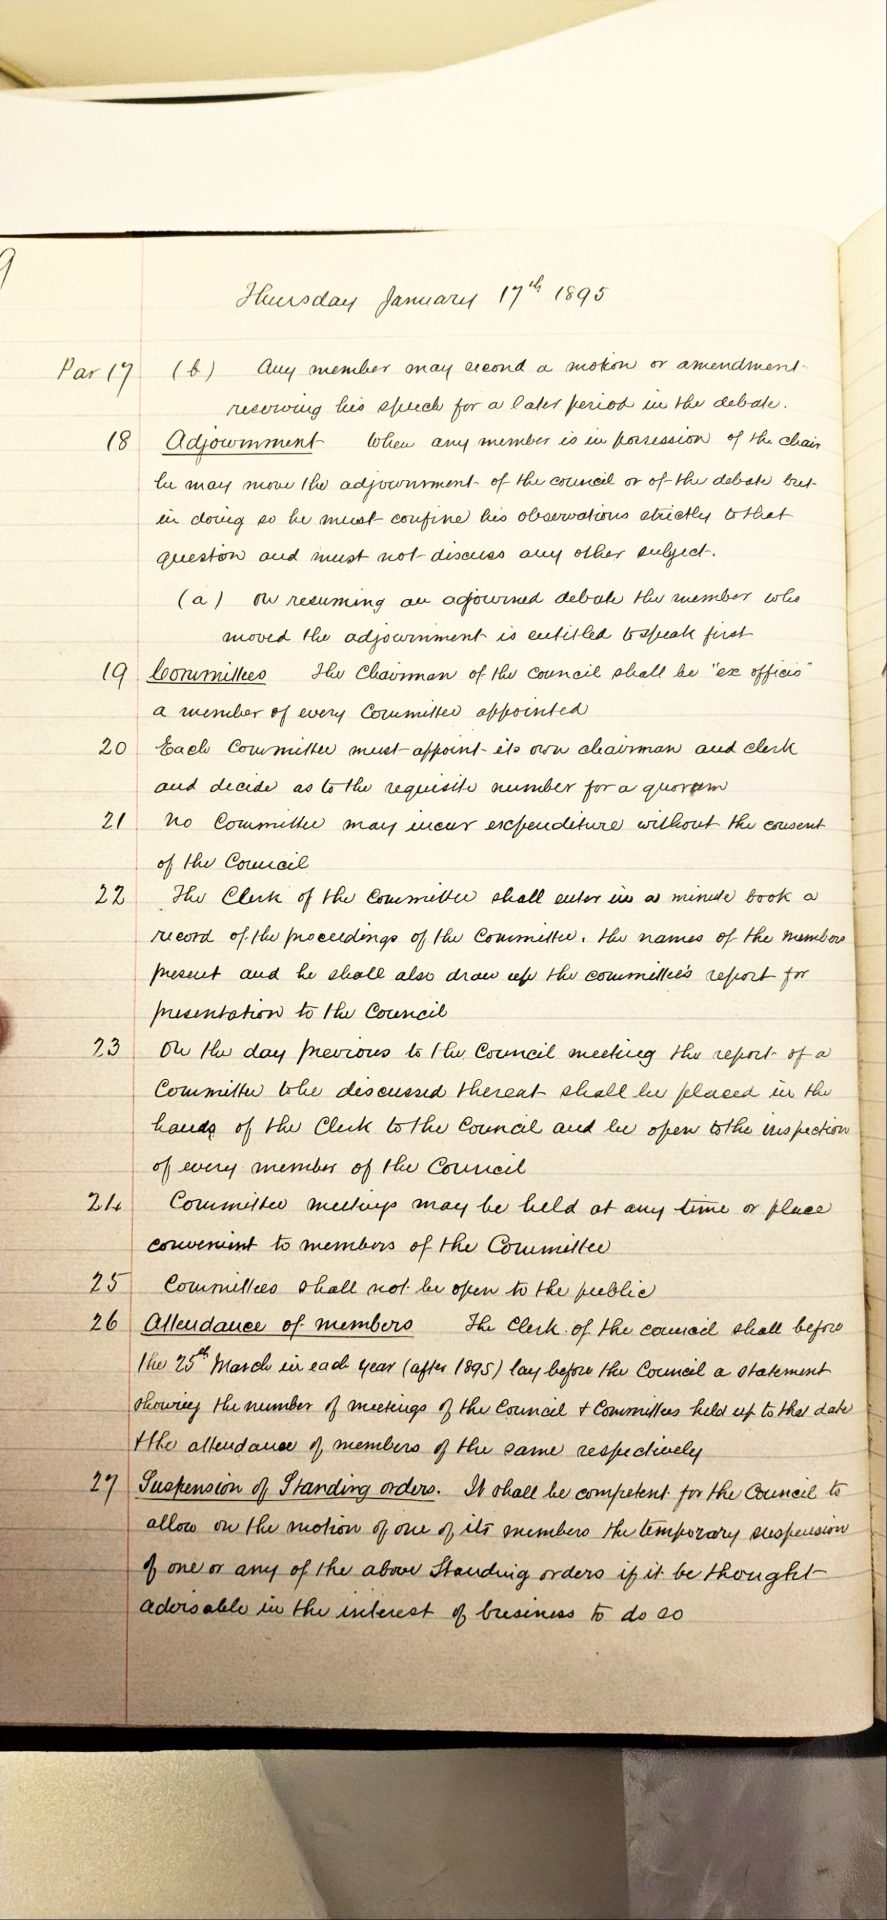 9
Thursday January 17th 1895
Par 17 (b) Any member may second a motion or amendment
reserving his speech for a later period in the debate.
18 Adjournment When any member is in possession of the chair
he may move the adjournment of the council or of the debate but
in doing so he must confine his observations strictly to that
question and must not discuss any other subject.
(a) On resuming an adjourned debate the member who
moved the adjournment is entitled to speak first
19 Committees The Chairman of the Council shall be "ex officio"
a member of every Committee appointed
20 Each Committee must appoint its own chairman and clerk
and decide as to the requisite number for a quorum
21 No Committee may incur expenditure without the consent
of the Council
22 The Clerk of the Committee shall enter in a minute book a
record of the proceedings of the Committee, the names of the members
present and he shall also draw up the committee's report for
presentation to the Council
23 On the day previous to the Council meeting the report of a
Committee to be discussed thereat shall be placed in the
hands of the Clerk to the Council and be open to the inspection
of every member of the Council
24 Committee meetings may be held at any time or place
convenient to members of the Committee
25 Committees shall not be open to the public
26 Attendance of members The Clerk of the council shall before
the 25th March in each year (after 1895) lay before the Council a statement
showing the number of meetings of the Council & Committees held up to that date
& the attendance of members of the same respectively
27 Suspension of Standing orders. It shall be competent for the Council to
allow on the motion of one of its members the temporary suspension
of one or any of the above Standing orders if it be thought
advisable in the interest of business to do so